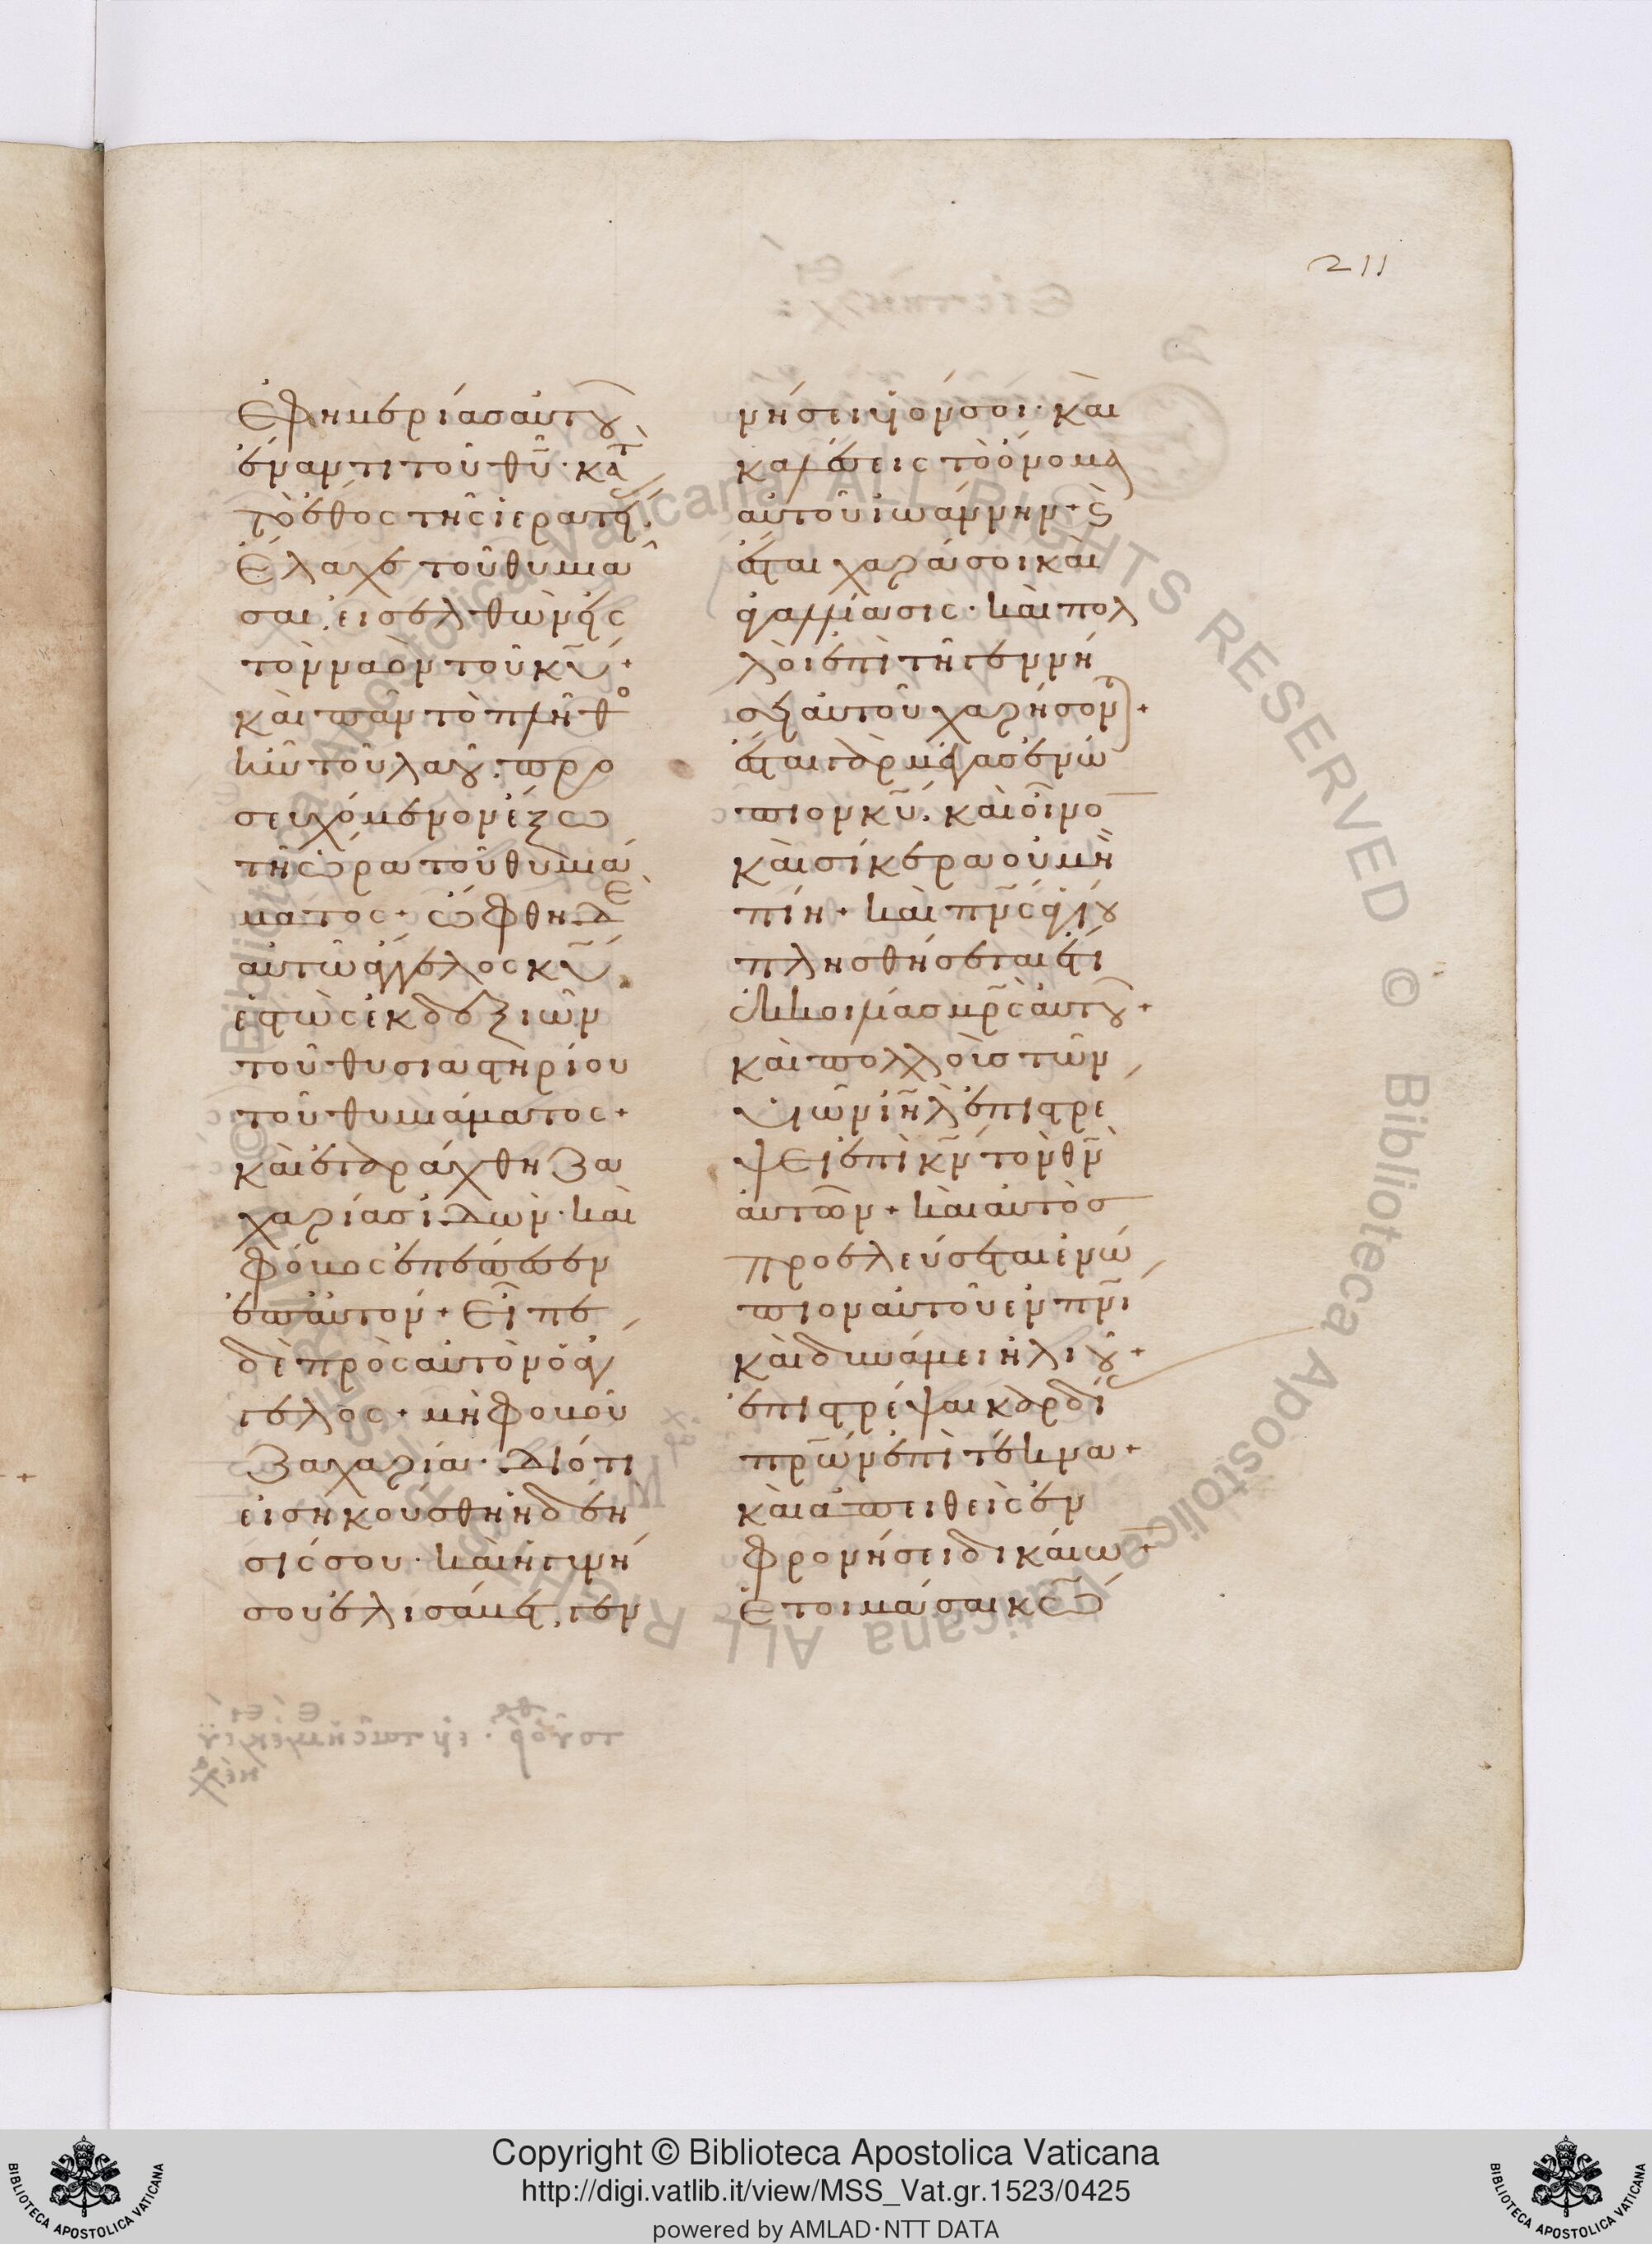 211
ἐφημερίασ αυτοῦ
ἔναντι τοῦ θῦ· κατ
τὸ ἔθος τῆς ἱερατεί
ἔλαχε τοῦ θυμιᾶ
σαι, εἰσελθὼν εἰς
τὸν ναὸν τοῦ κυ+
καὶ πᾶν τὸ πλῆθο
ἦν τοῦ λαοῦ. προ
σευχόμενον ἔξω
τῆ ὥρα τοῦ θυμιά
ματος+ ὤφθη δὲ
αὐτῶ ἄγγελος κυ
ἑστὼς ἐκ δεξιῶν
τοῦ θυσιαστηρίου
τοῦ θυμιάματος+
καὶ ἐταράχθη Ζα
χαρίας ἰδών· καὶ
φόβος ἐπέπεσεν
ἐπ αὐτόν+ Εἶπε
δὲ πρὸς αὐτὸν ὁ ἄγ
γελος+ μὴ φοβοῦ
Ζαχαρία· διότι
εἰσηκούσθη ἡ δέη
σίς σου· καὶ ἡ γυνή
σου ἐλισάβετ, γεν
νήσει υἱόν σοι· καὶ
καλέσεις τὸ ὄνομα
αὐτοῦ ἰωάννην+ ϛ
ἔσται χαρά σοι καὶ
ἀγαλλίασις· καὶ πολ
λοὶ ἐπὶ τῆ γεννή
σει αὐτοῦ χαρήσον+
ἔσται γὰρ μέγας ἐνώ
πιον κῦ. καὶ οἶνο
καὶ σίκερα οὐ μὴ
πίη+ καὶ πνς ἁγίου
πλησθήσεται ἔτι
ἐκ κοιλίας μρς αὐτοῦ+
καὶ πολλοὺς τῶν
υἱῶν ιηλ ἐπιστρέ
ψει ἐπὶ κν τὸν θν
αὐτῶν+ καὶ αὐτὸς
προελεύσεται ἐνώ
πιον αὐτοῦ ἐν πνι
καὶ δυνάμει ἠλιοῦ+
ἐπιστρέψαι καρδί
πρῶν ἐπὶ τέκνα+
καὶ ἀπειθεὶς ἐν
φρονήσει δικαίω
ἑτοιμάσαι κω
Copyright © Biblioteca Apostolica Vaticana
http://digi.vatlib.it/view/MSS_Vat.gr.1523/0425
powered by AMLAD·NTT DATA